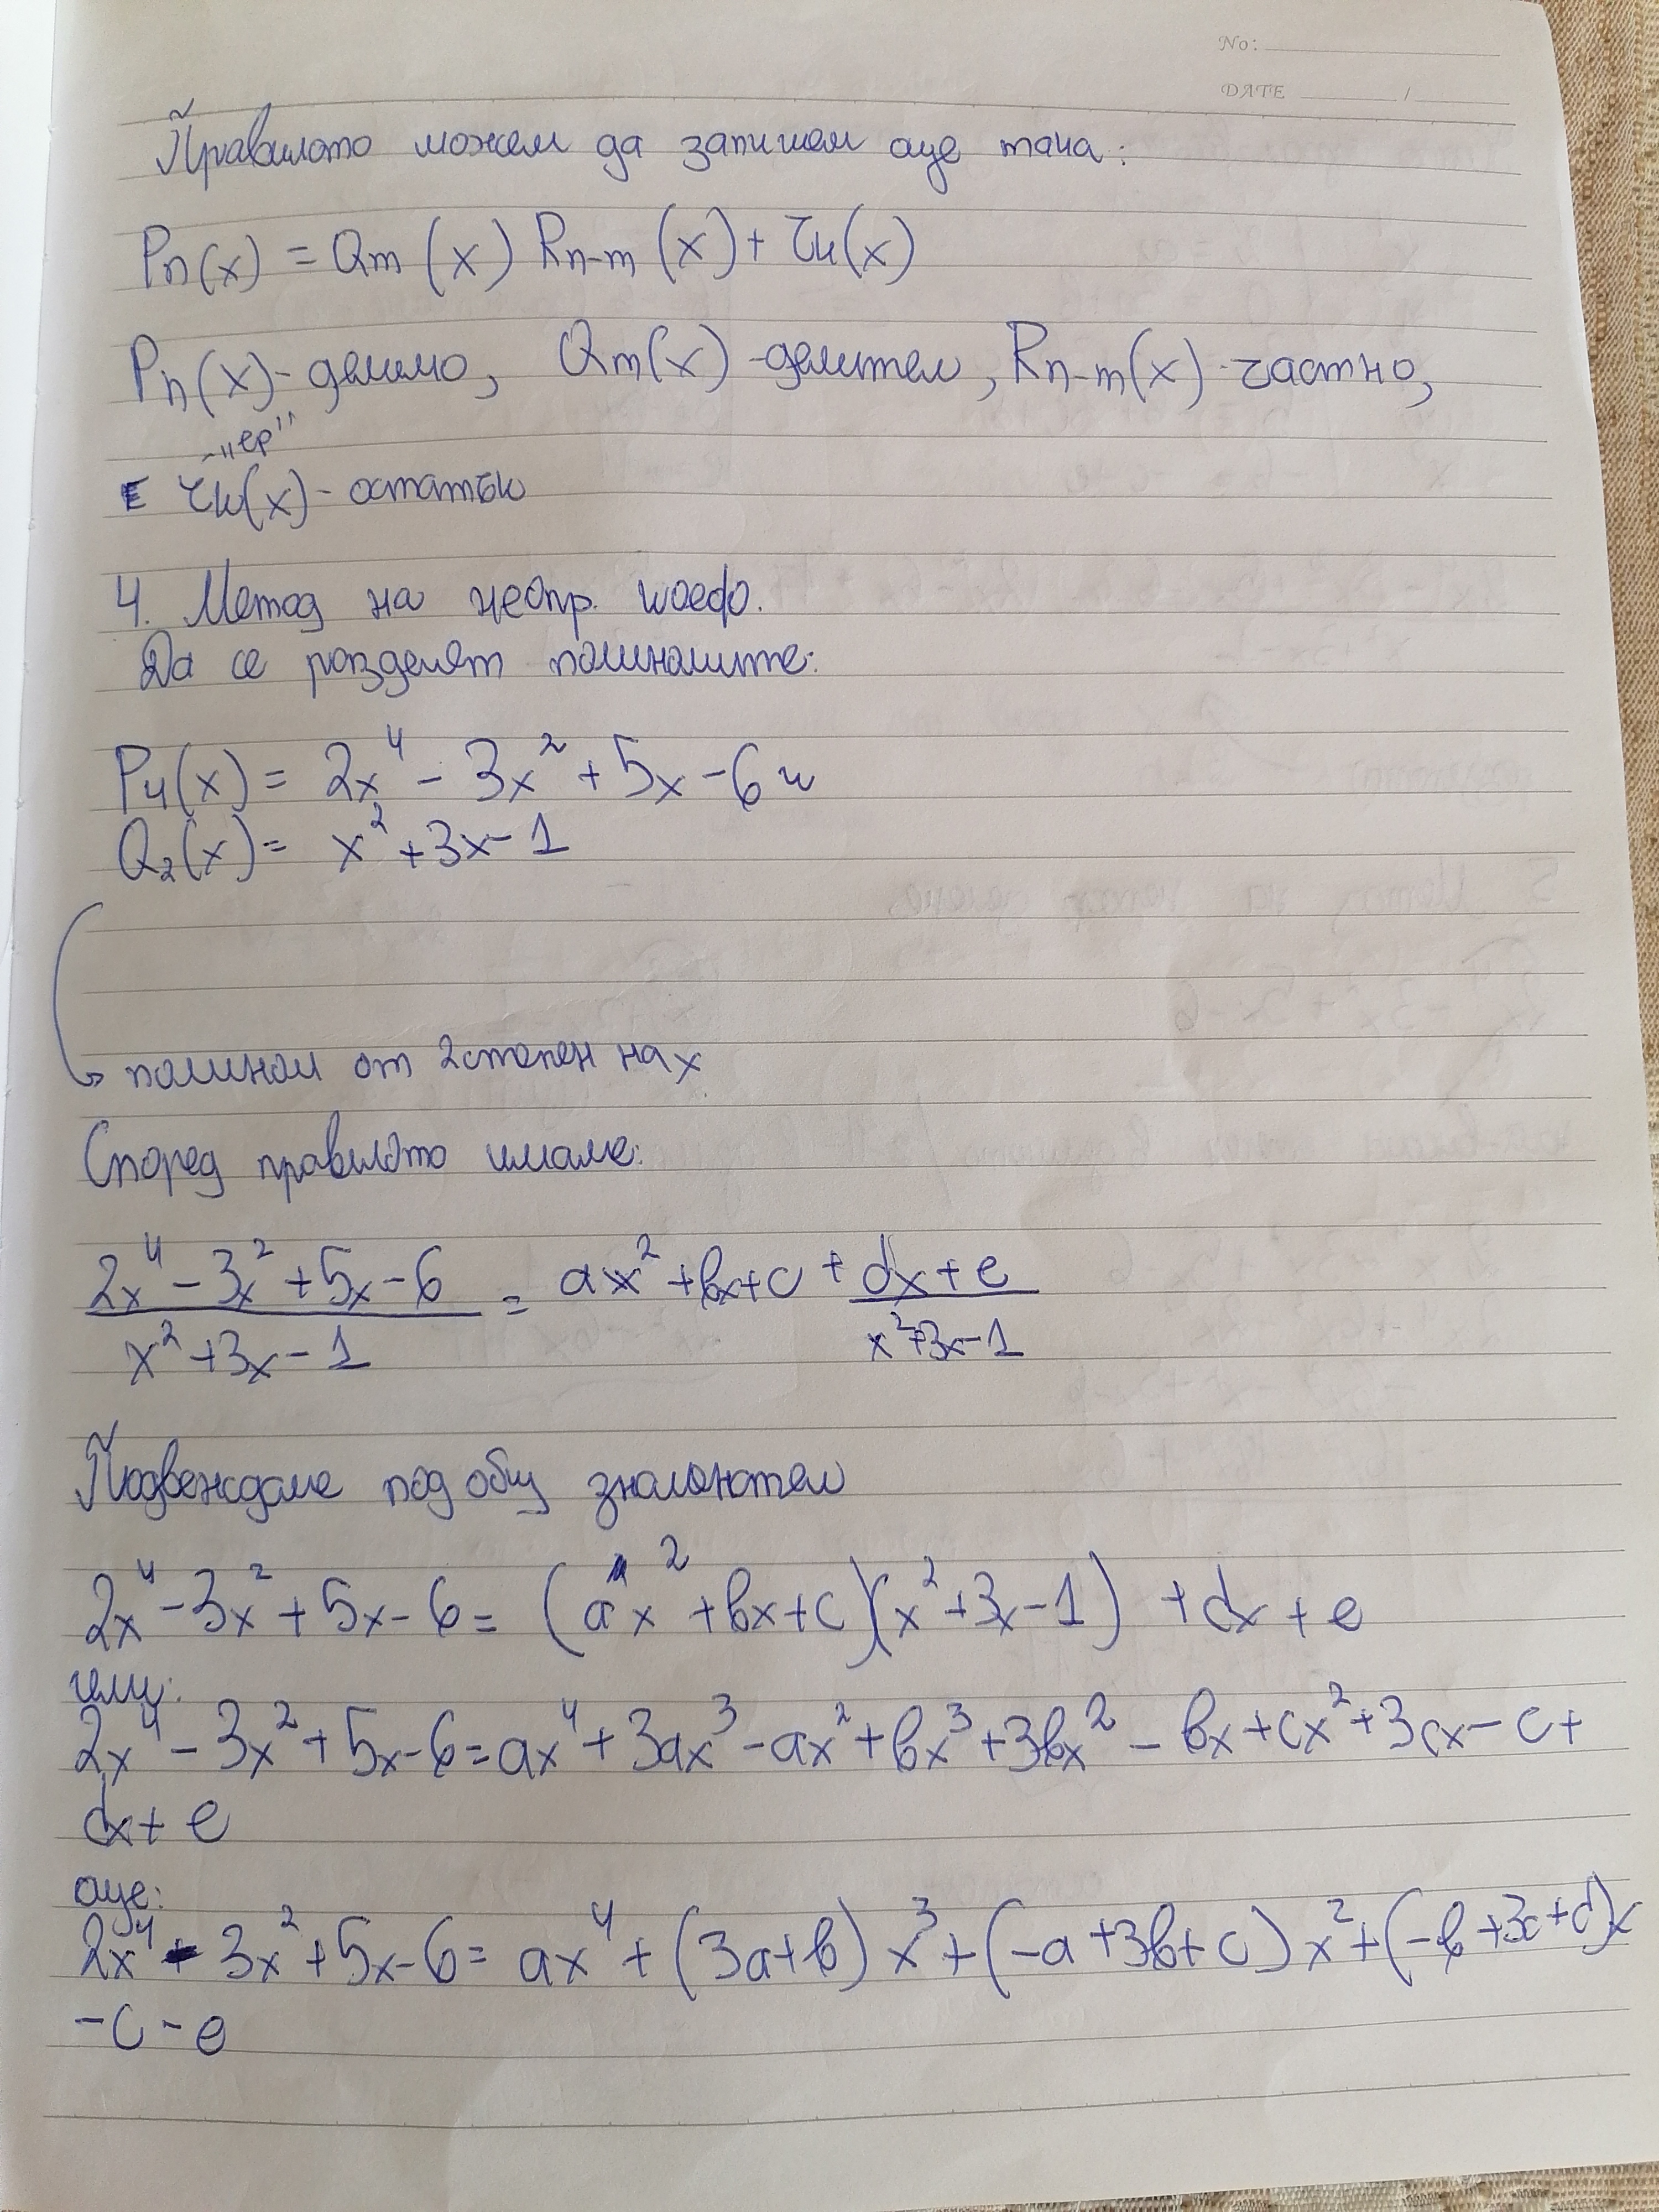 No:
DATE /
Правилото можем да запишем още така:
Pn(x) = Qm(x) Rn-m(x) + rk(x)
Pn(x) - делимо, Qm(x) - делител, Rn-m(x) - частно,
- "ер"
rk(x) - остатък
4. Метод на неопр. коеф.
Да се разделят полиномите:
P4(x) = 2x⁴ - 3x² + 5x - 6 и
Q2(x) = x² + 3x - 1
полином от 2 степен на x
Според правилото имаме:
(2x⁴ - 3x² + 5x - 6)/(x² + 3x - 1) = ax² + bx + c + (dx + e)/(x² + 3x - 1)
Подвеждаме под общ знаменател
2x⁴ - 3x² + 5x - 6 = (ax² + bx + c)(x² + 3x - 1) + dx + e
или:
2x⁴ - 3x² + 5x - 6 = ax⁴ + 3ax³ - ax² + bx³ + 3bx² - bx + cx² + 3cx - c +
dx + e
още:
2x⁴ - 3x² + 5x - 6 = ax⁴ + (3a + b) x³ + (-a + 3b + c) x² + (-b + 3c + d)x
- c - e